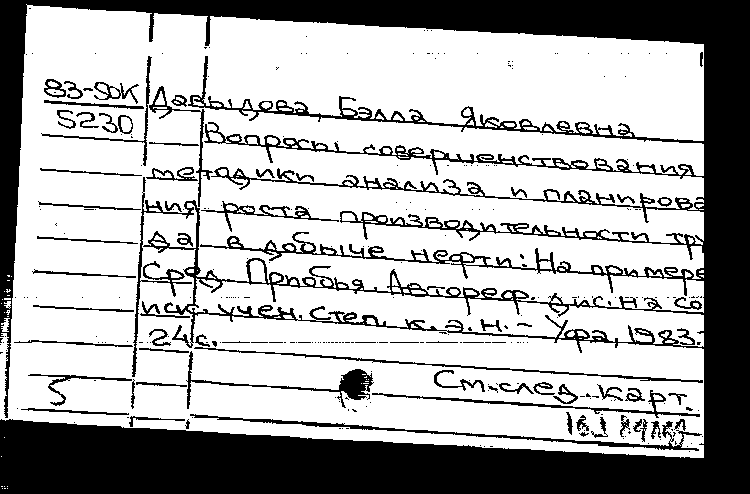 83-SOK Давыдова, Бэлла Яковлевна
5230
Вопросы совершенствования
методики анализа и планирова
ния роста производительности тру
да в добыче нефти: На примере
Сред. Приобья. Автореф. дис. на со
иск. учен. степ. к. э. н. - Уфа, 1983.-
24 с.
5
См. след. карт.